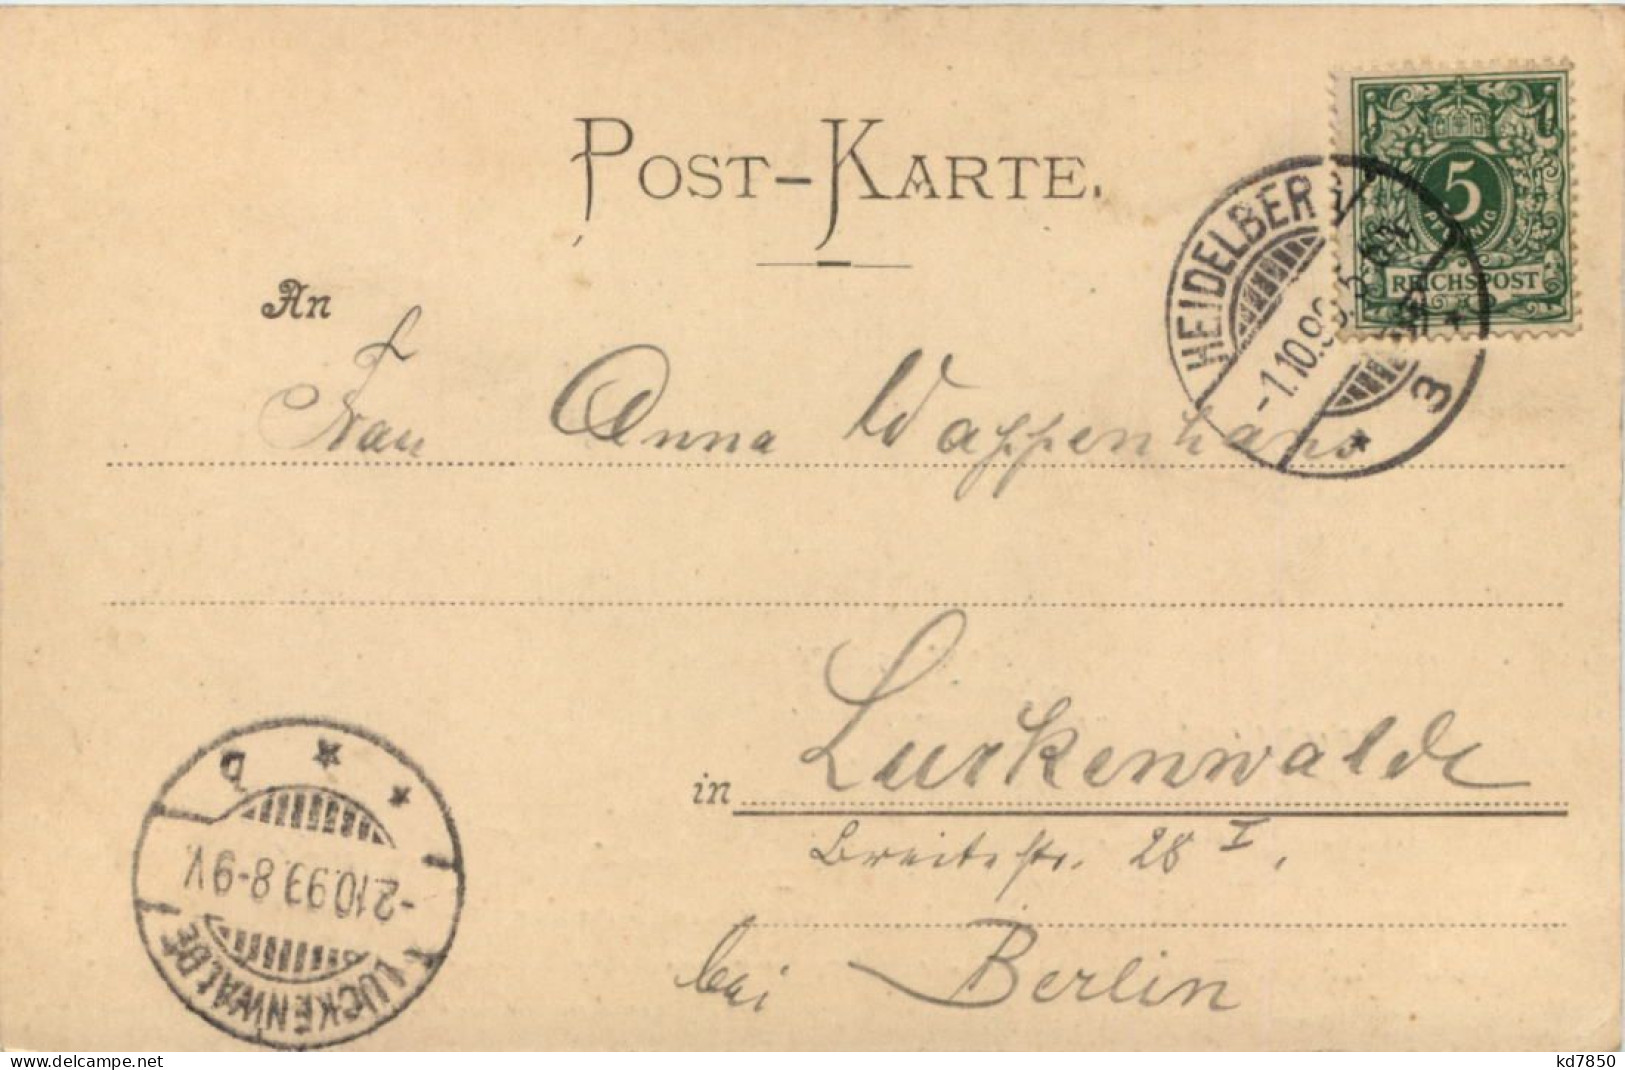 POST-KARTE.
5
PFENNIG
REICHSPOST
HEIDELBERG
-1.10.99.
3
An
Frau Anna Wappenhans
in Luckenwalde
Breitestr. 28 I.
bei Berlin
LUCKENWALDE
-2.10.99.8-9V.
www.delcampe.net
kd7850